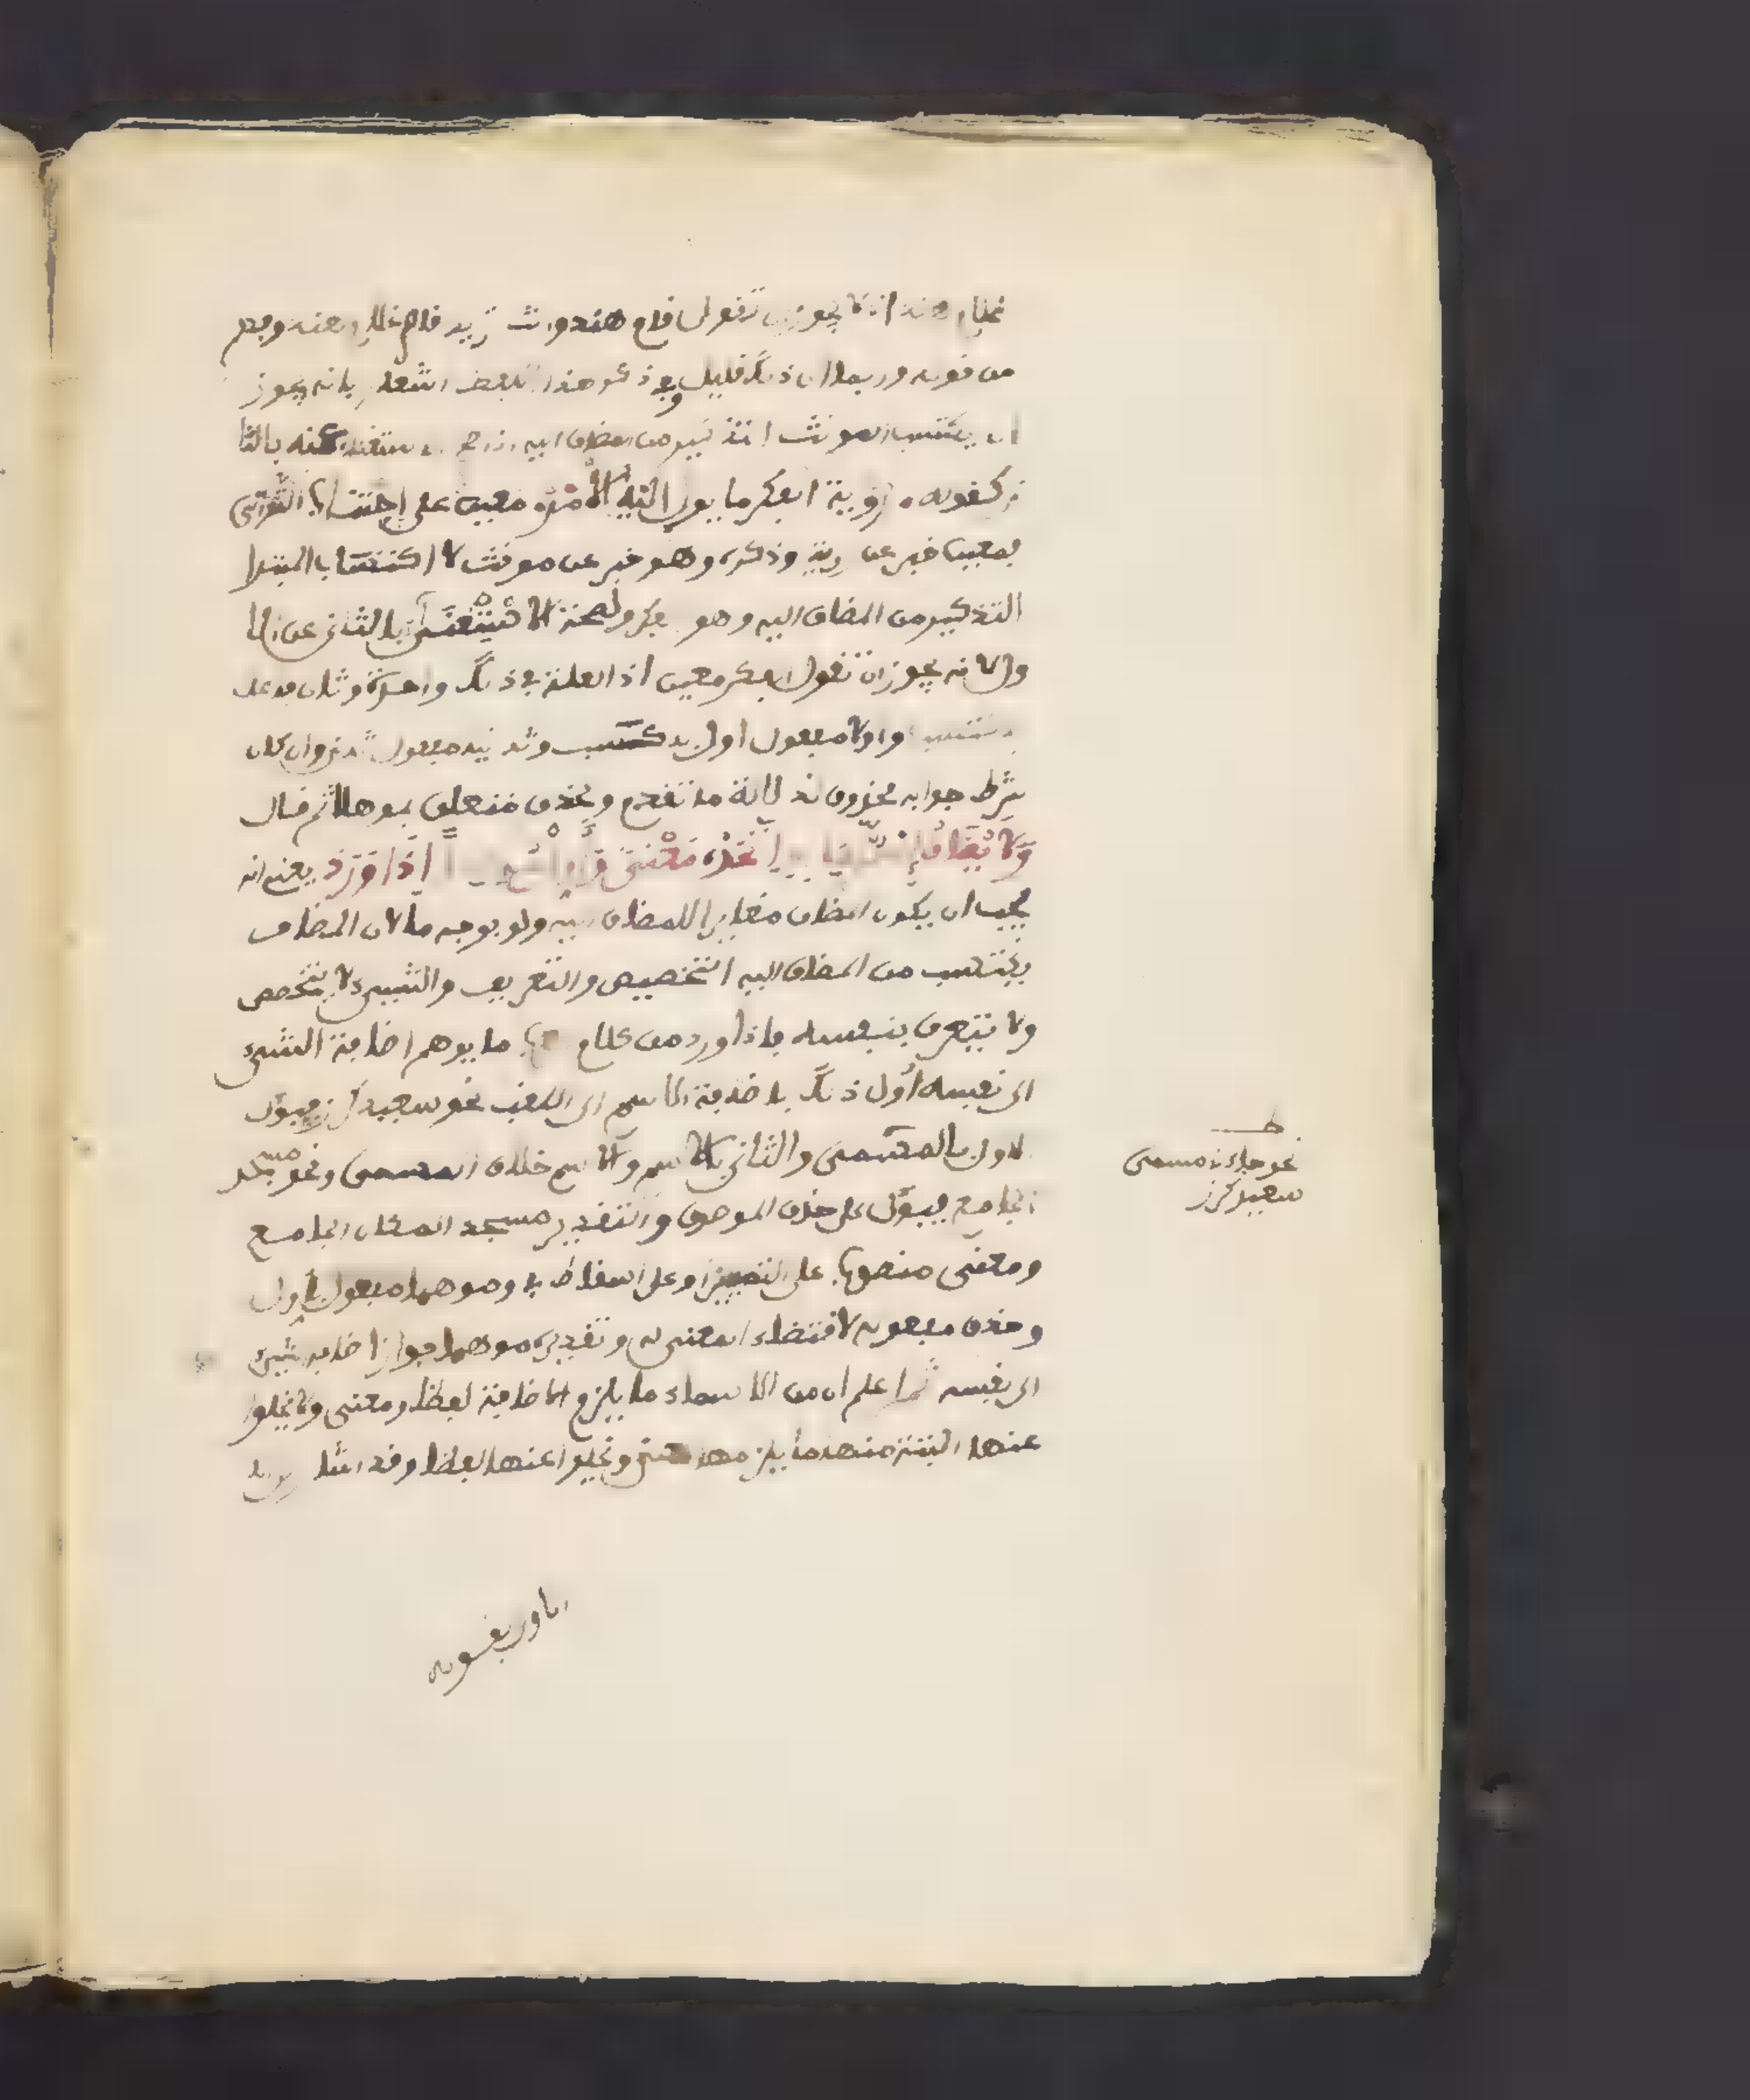 غلام هند اذ لا يجوز ان تقول قام هند وانت تريد قام غلام هند وفهم
من قوله وربما ان ذلك قليل وفي ذكر هذا البعض اشعار بانه يجوز
ان يكتسب المونث التذكير من المضاف اليه اذا صح الاستغناء عنه بالثا
ني كقوله رؤية الفكر ما يول اليه الامر معين على اجتناب التواني
فمعين خبر عن روية وذكره وهو خبر عن مونث لاكتسابه المبتدا
التذكير من المضاف اليه وهو فكر ولصحة الاستغناء بالثاني عن الا
ول لانه يجوز ان تقول الفكر معين اذ العلة في ذلك واحدة وثان فاعل
باكتسب واولا مفعول اول باكتسب وتانيثا مفعول ثان وان كان
شرط جوابه محذوف لدلالة ما تقدم وبحذف متعلق بموهلا ثم قال
ولا يضاف اسم لما به اتحد معنى واول موهما اذا ورد يعني انه
يجب ان يكون المضاف مغايرا للمضاف اليه ولو بوجه ما لان المضاف
يكتسب من المضاف اليه التخصيص والتعريف والشيء لا يتخصص
ولا يتعرف بنفسه فاذا ورد من كلام ما يوهم اضافة الشيء
الى نفسه اول ذلك باضافة الاسم الى اللقب نحو سعيد كرز فيؤل
الاول بالمسمى والثاني بالاسم والاسم خلاف المسمى ونحو مسجد
الجامع فيؤل على حذف الموصوف والتقدير مسجد المكان الجامع
ومعنى منصوب على التمييز او على اسقاط في وموهما مفعول باول
وحذف مفعوله لاقتضاء المعنى له وتقديره موهما جواز اضافة شيء
الى نفسه ثم اعلم ان من الاسماء ما يلزم الاضافة لفظا ومعنى ولا يخلوا
عنها البتة ومنها ما يلزمها معنى ويخلوا عنها لفظا وقد اشار
الى الاول بقوله
ط
نحو جاء نا مسمى
سعيد كرز